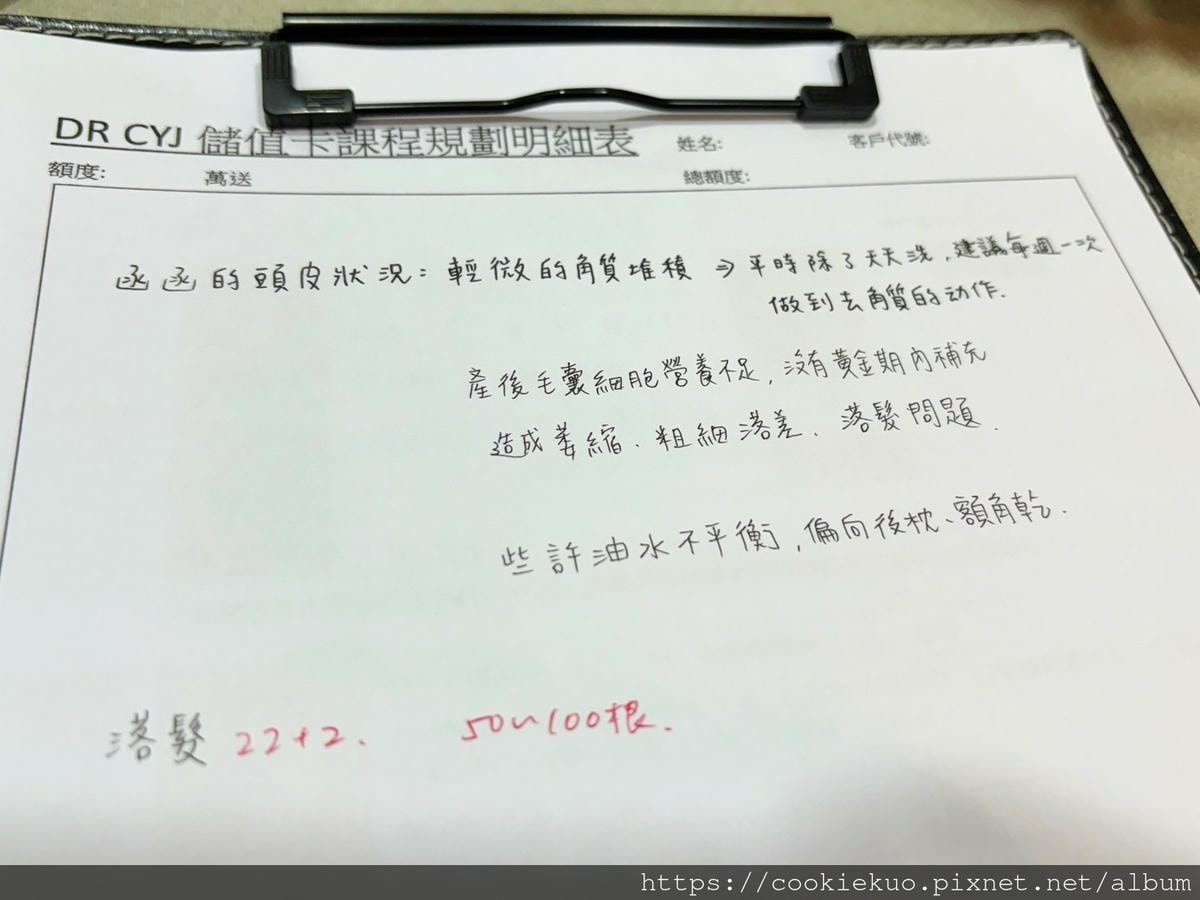 DR CYJ 儲值卡課程規劃明細表 姓名: 客戶代號:
額度: 萬送 總額度:
函函的頭皮狀況：輕微的角質堆積 ⇒ 平時除了天天洗，建議每週一次
做到去角質的动作.
產後毛囊細胞營養不足，沒有黃金期內補充
造成萎縮、粗細落差、落髮問題.
些許油水不平衡，偏向後枕、額角乾.
落髮 22+2. 50~100根.
https://cookiekuo.pixnet.net/album